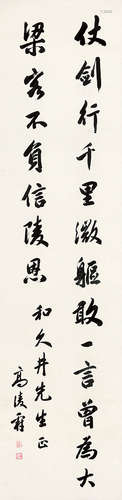 仗劍行千里微軀敢一言曾為大
梁客不負信陵恩
和久井先生正
高凌霨